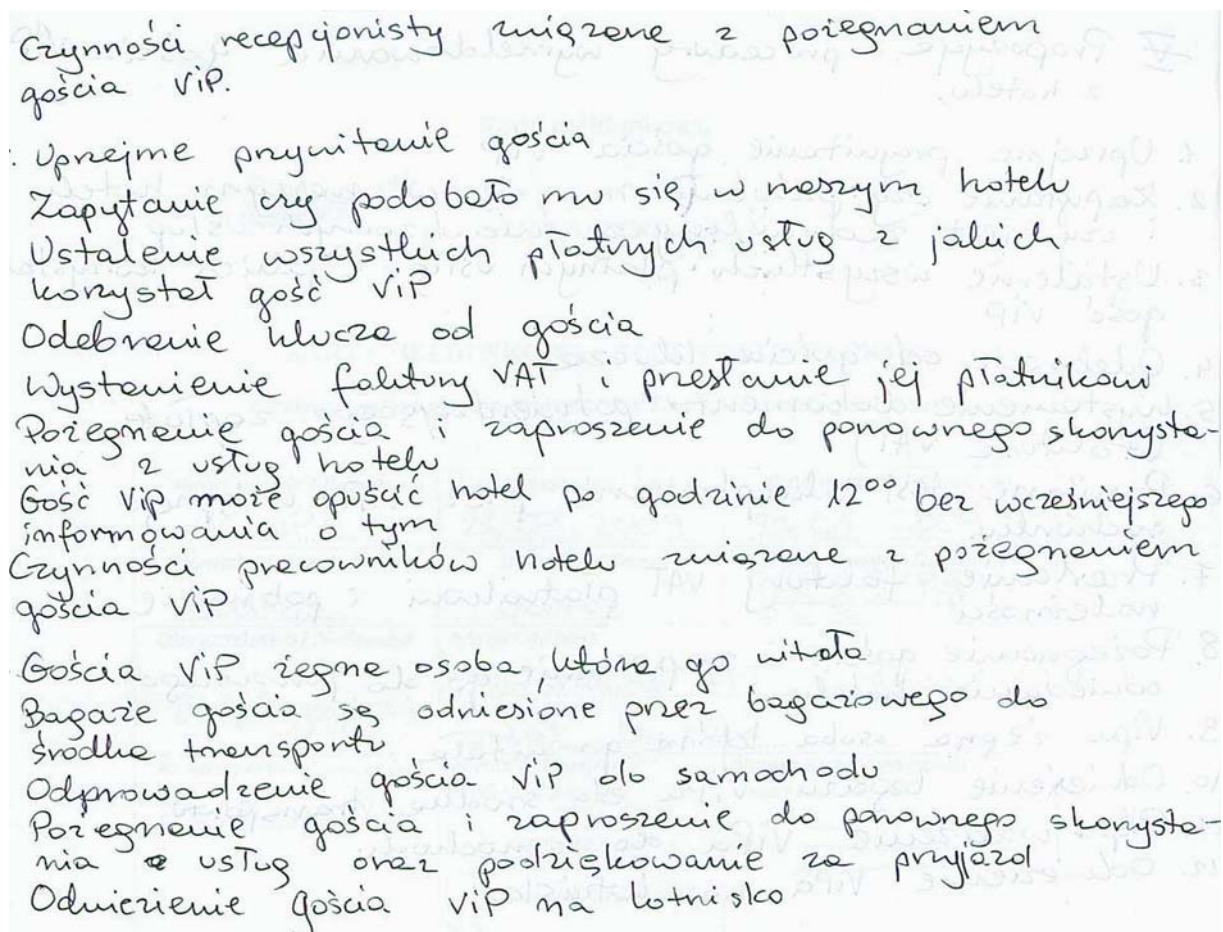 Czynności recepcjonisty związane z pożegnaniem
gościa ViP.
Uprzejme przywitanie gościa
Zapytanie czy podobało mu się w naszym hotelu
Ustalenie wszystkich płatnych usług z jakich
korzystał gość ViP
Odebranie klucza od gościa
Wystawienie faktury VAT i przesłanie jej płatnikowi
Pożegnanie gościa i zaproszenie do ponownego skorzysta-
nia z usług hotelu
Gość ViP może opuścić hotel po godzinie 12⁰⁰ bez wcześniejszego
informowania o tym
Czynności pracowników hotelu związane z pożegnaniem
gościa ViP
Gościa ViP żegna osoba, która go witała
Bagaże gościa są odniesione przez bagażowego do
środka transportu
Odprowadzenie gościa ViP do samochodu
Pożegnanie gościa i zaproszenie do ponownego skorzysta-
nia z usług oraz podziękowanie za przyjazd
Odwiezienie gościa ViP na lotnisko